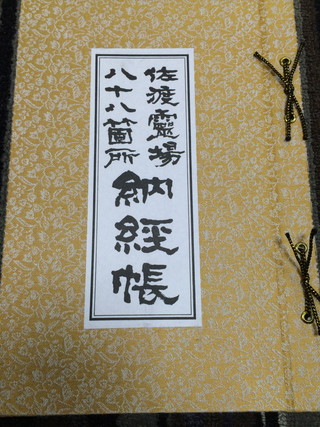 佐渡靈場
八十八箇所
納經帳